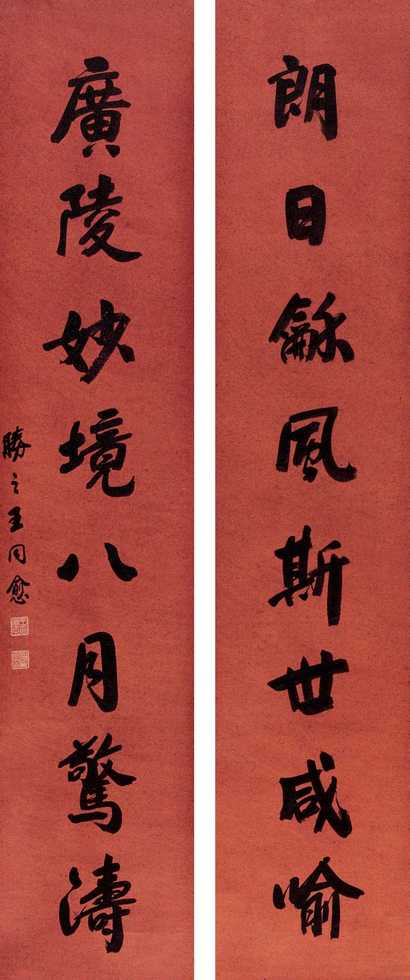 朗日龢風斯世咸喻
廣陵妙境八月驚濤
勝之王同愈